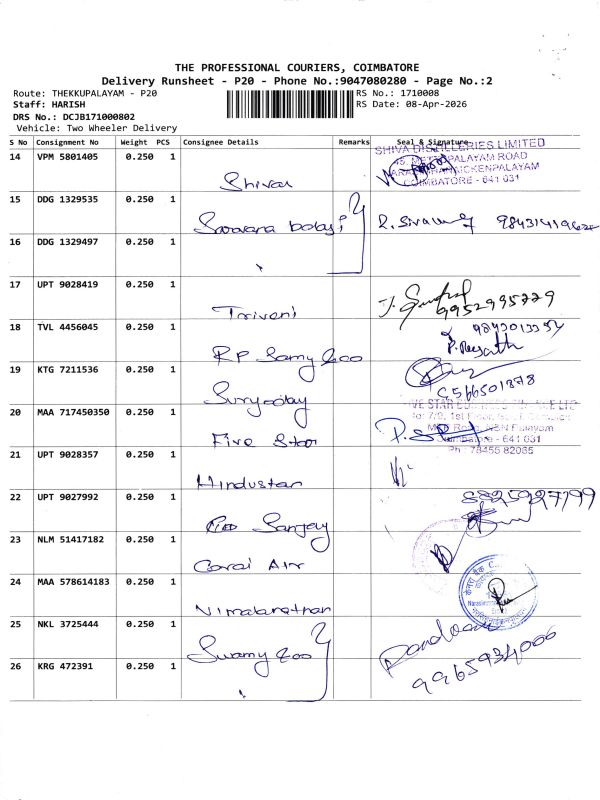 THE PROFESSIONAL COURIERS, COIMBATORE
Delivery Runsheet - P20 - Phone No.:9047080280 - Page No.:2
Route: THEKKUPALAYAM - P20
RS No.: 1710008
Staff: HARISH
RS Date: 08-Apr-2026
DRS No.: DCJB171000802
Vehicle: Two Wheeler Delivery
S No Consignment No Weight PCS Consignee Details Remarks Seal & Signature
SHIVA DISTILLERIES LIMITED
14 VPM 5801405 0.250 1
PALAYAM ROAD
COIMBATORE - 641 031
Shiva
15 DDG 1329535 0.250 1
Saravana
16 DDG 1329497 0.250 1
17 UPT 9028419 0.250 1
Triveni
9952995229
18 TVL 4456045 0.250 1
RP Samy
19 KTG 7211536 0.250 1
Suryoday
20 MAA 717450350 0.250 1
Five Star
641 031
21 UPT 9028357 0.250 1
Ph : 78455 82065
Hindustan
22 UPT 9027992 0.250 1
8825927799
Sanjay
23 NLM 51417182 0.250 1
Air
24 MAA 578614183 0.250 1
25 NKL 3725444 0.250 1
Swamy
26 KRG 472391 0.250 1
9965934006